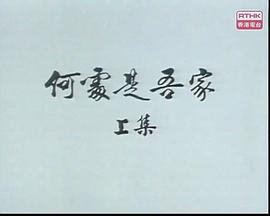 RTHK
香港電台
何處是吾家
上集